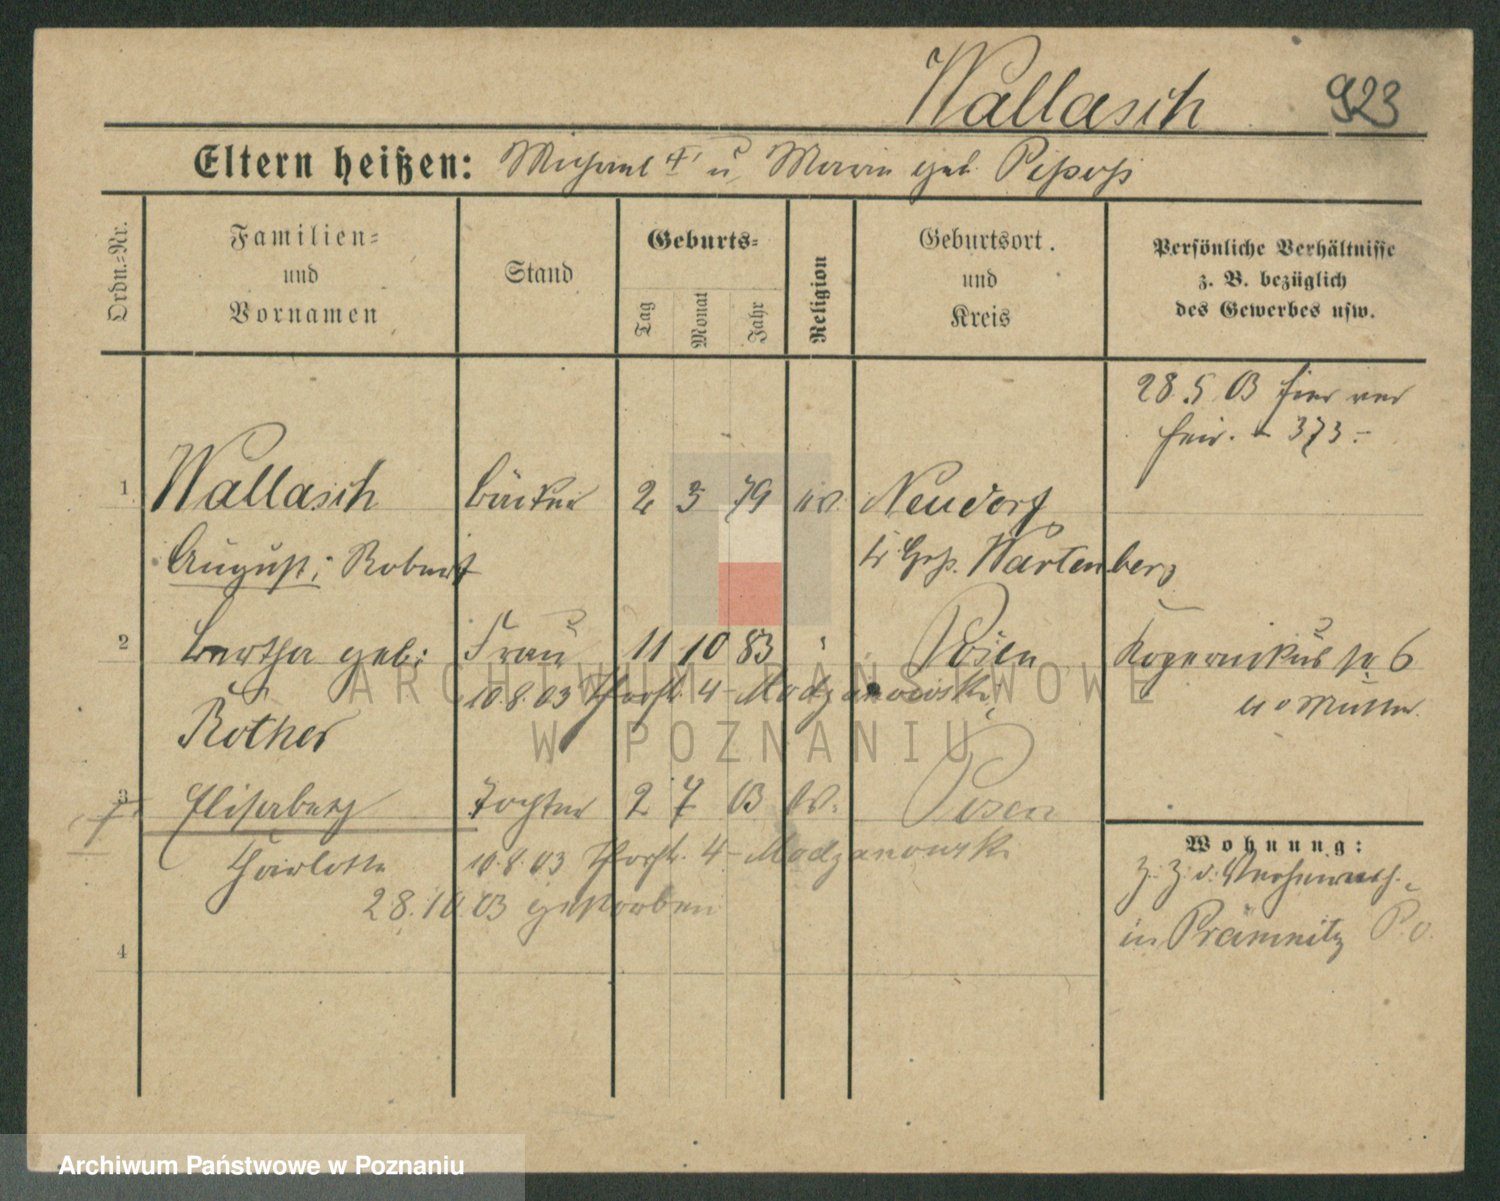 Wallasch 923
Eltern heißen: Michael † u. Maria geb.
Ordn.-Nr.
Familien-
und
Vornamen
Stand
Geburts-
Tag
Monat
Jahr
Religion
Geburtsort.
und
Kreis
Persönliche Verhältnisse
z. B. bezüglich
des Gewerbes usw.
28.5.03 hier ver
heir. 373.-
1 Wallasch Bäcker 2 3 79 ev. Neudorf
August, Robert Kr Groß. Wartenberg
2 Bertha geb: Frau 11 10 83 " Posen Kopernikus str 6
10.8.03 4 - Modzanowski
b/ Mutter
Rother
3 Elisabeth Tochter 2 7 03 ev. Posen
Charlotte 10.8.03 4 - Modzanowski
28.10.03 gestorben
4
Wohnung:
z. Z. v.
in Prämnitz P.O.
ARCHIWUM PAŃSTWOWE
W POZNANIU
Archiwum Państwowe w Poznaniu